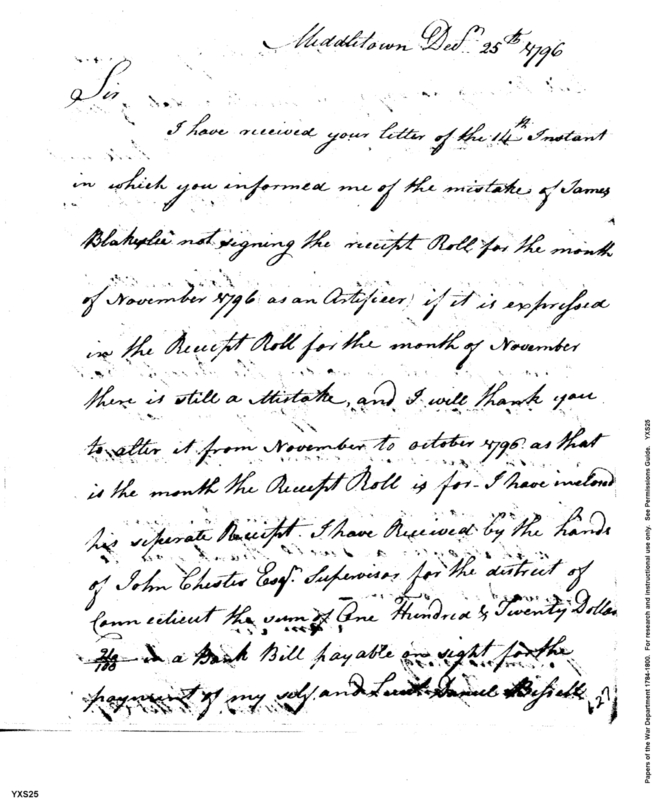 Middletown Decr. 25th 1796
Sir
I have received your letter of the 14th Instant
in which you informed me of the mistake of James
Blakeslie not signing the receipt Roll for the month
of November 1796 as an Artificer, if it is expressed
in the Receipt Roll for the month of November
there is still a Mistake, and I will thank you
to alter it from November to october 1796 as that
is the month the Receipt Roll is for - I have inclosd
his seperate Receipt. I have Received by the hands
of John Chester Esqr. Supervisor for the district of
Connecticut the sum of One Hundred & Twenty Dollars
/100 in a Bank Bill payable on sight for the
payment of my self and Lieut. Daniel Bissell
Papers of the War Department 1784-1800. For research and instructional use only. See Permissions Guide. YXS25
YXS25